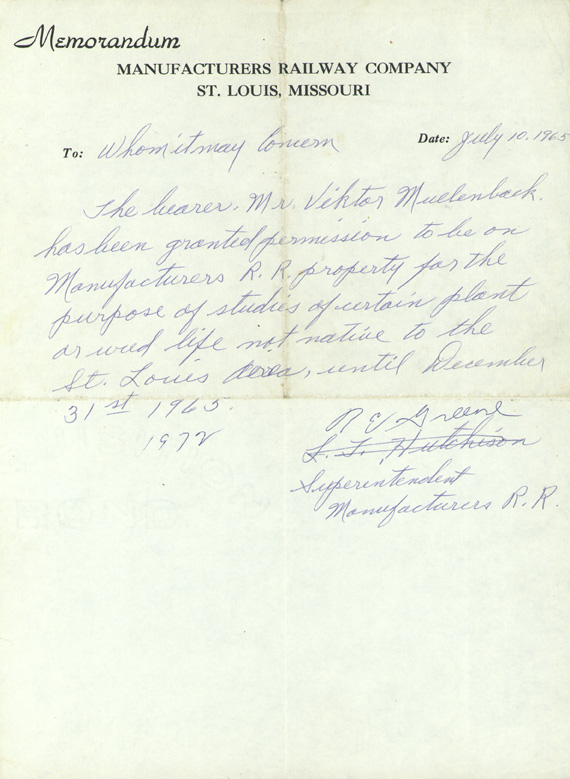 Memorandum
MANUFACTURERS RAILWAY COMPANY
ST. LOUIS, MISSOURI
To: Whom it may Concern Date: July 10, 1965
The bearer. Mr. Viktor Muelenback.
has been granted permission to be on
Manufacturers R. R. property for the
purpose of studies of certain plant
or weed life not native to the
St. Louis Area, until December
31st 1965.
1972
N E Greene
L. F. Hutchison
Superintendent
Manufacturers R. R.